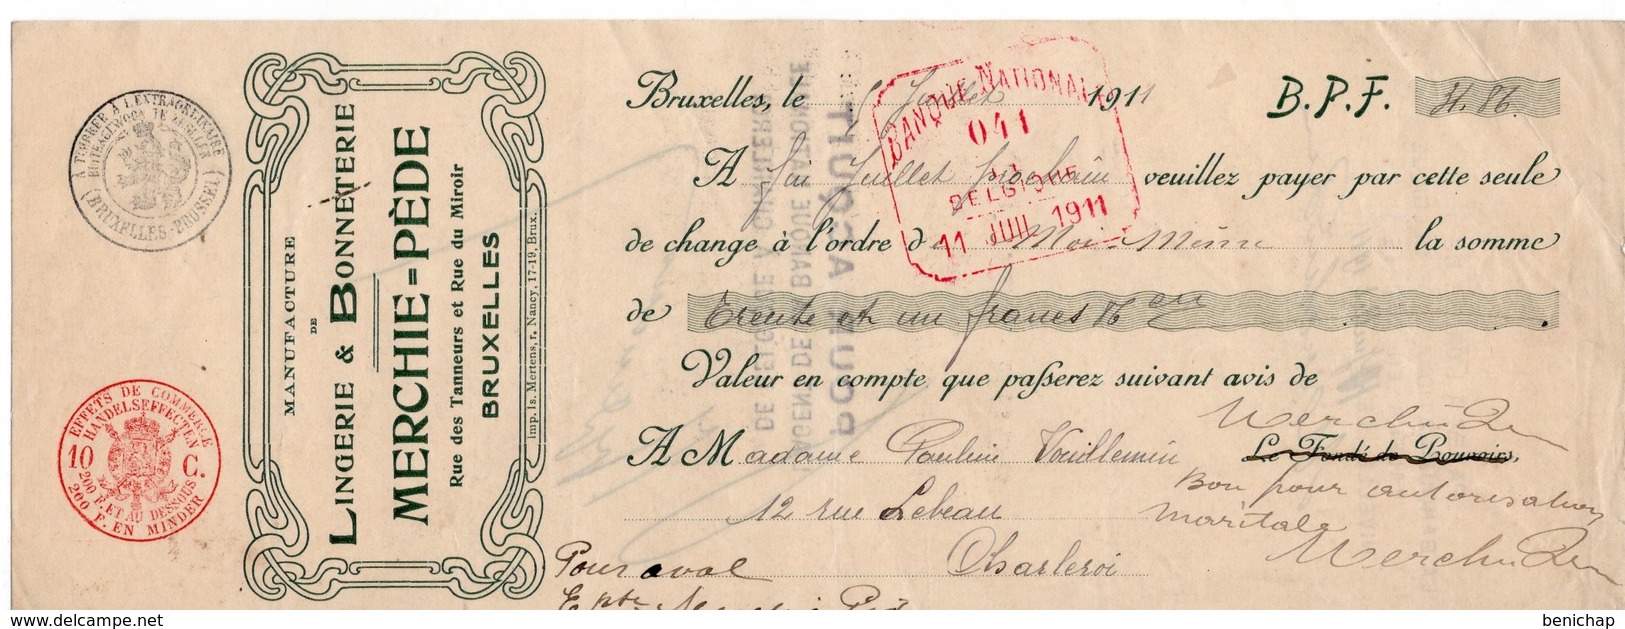 À TIMBRER À L'EXTRAORDINAIRE
(BRUXELLES-BRUSSEL)
EFFETS DE COMMERCE
HANDELSEFFECTEN
10 C.
200 F. ET AU DESSOUS
200 F. EN MINDER
MANUFACTURE
DE
LINGERIE & BONNETERIE
MERCHIE=PÈDE
Rue des Tanneurs et Rue du Miroir
BRUXELLES
Imp. Is. Mertens, r. Nancy, 17-19, Brux.
Bruxelles, le 5 Juillet 1911 B.P.F. 31.86
BANQUE NATIONALE
041
DE
BELGIQUE
11 JUIL 1911
A fin Juillet prochain veuillez payer par cette seule
de change à l'ordre de Moi-Même la somme
de Trente et un francs 86 cn
Valeur en compte que passerez suivant avis de
A Madame Pauline Vouillemin
Le Fondé de Pouvoirs,
12 rue Lebeau
Charleroi
Bon pour autorisation
maritale
Pour aval
POUR ACQUIT
AGENT DE BANQUE NATIONALE
DE BELGIQUE A CHARLEROI
benichap